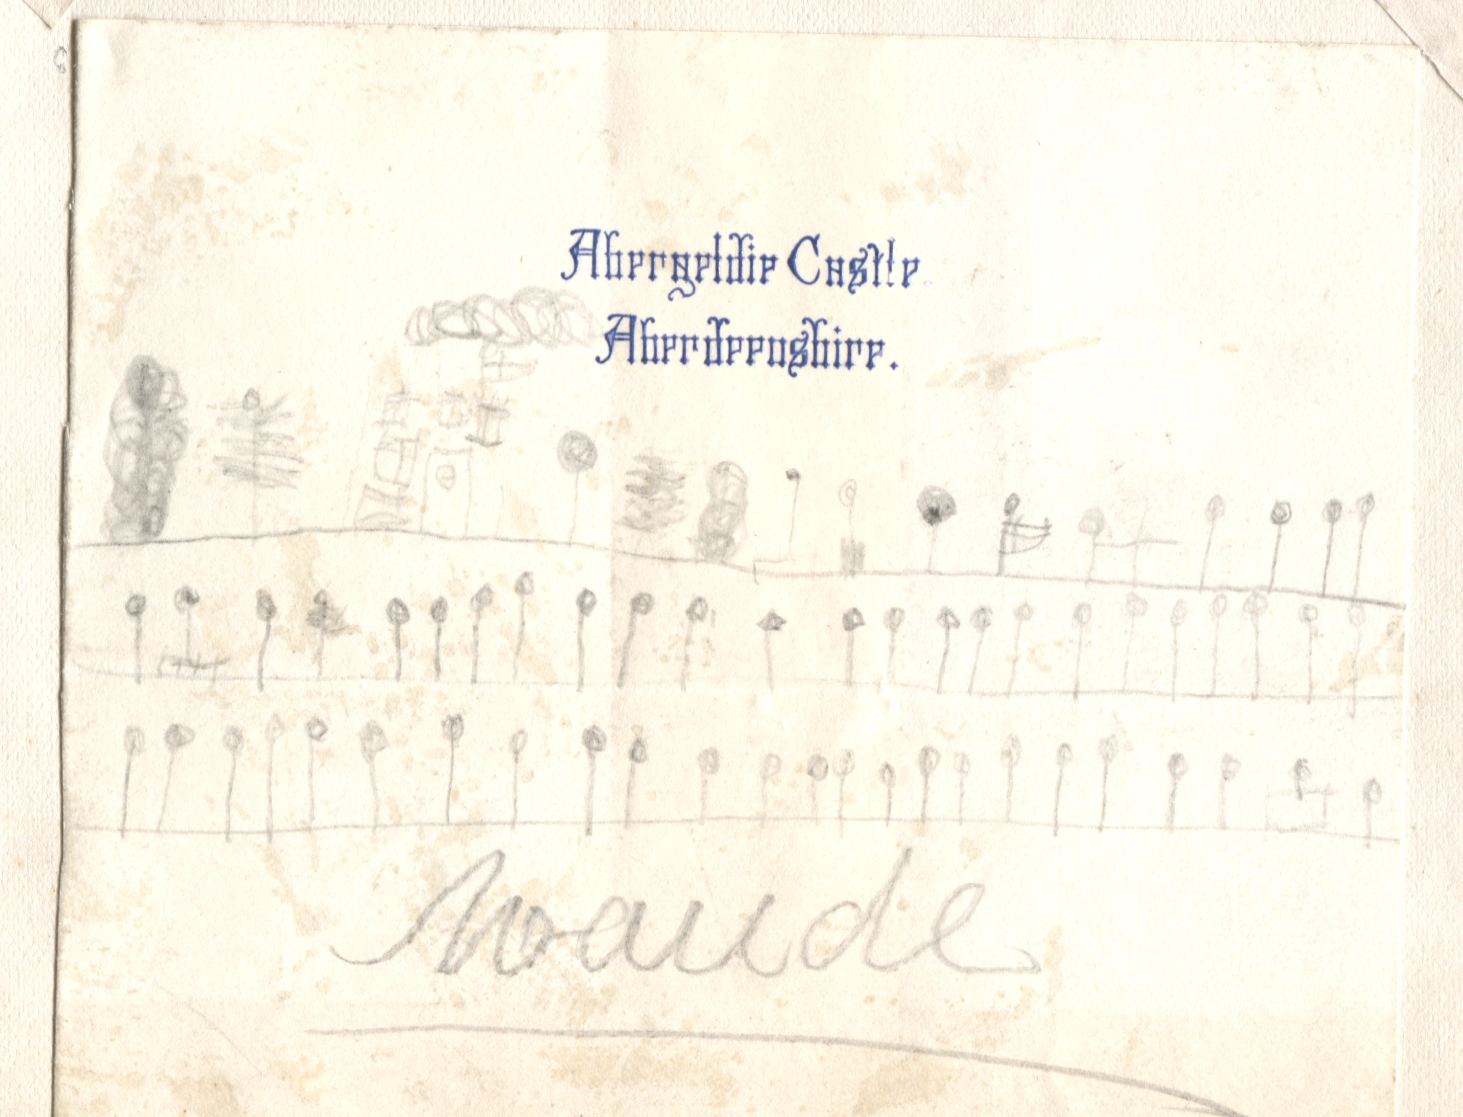 Abergeldie Castle
Aberdeenshire.
Maude